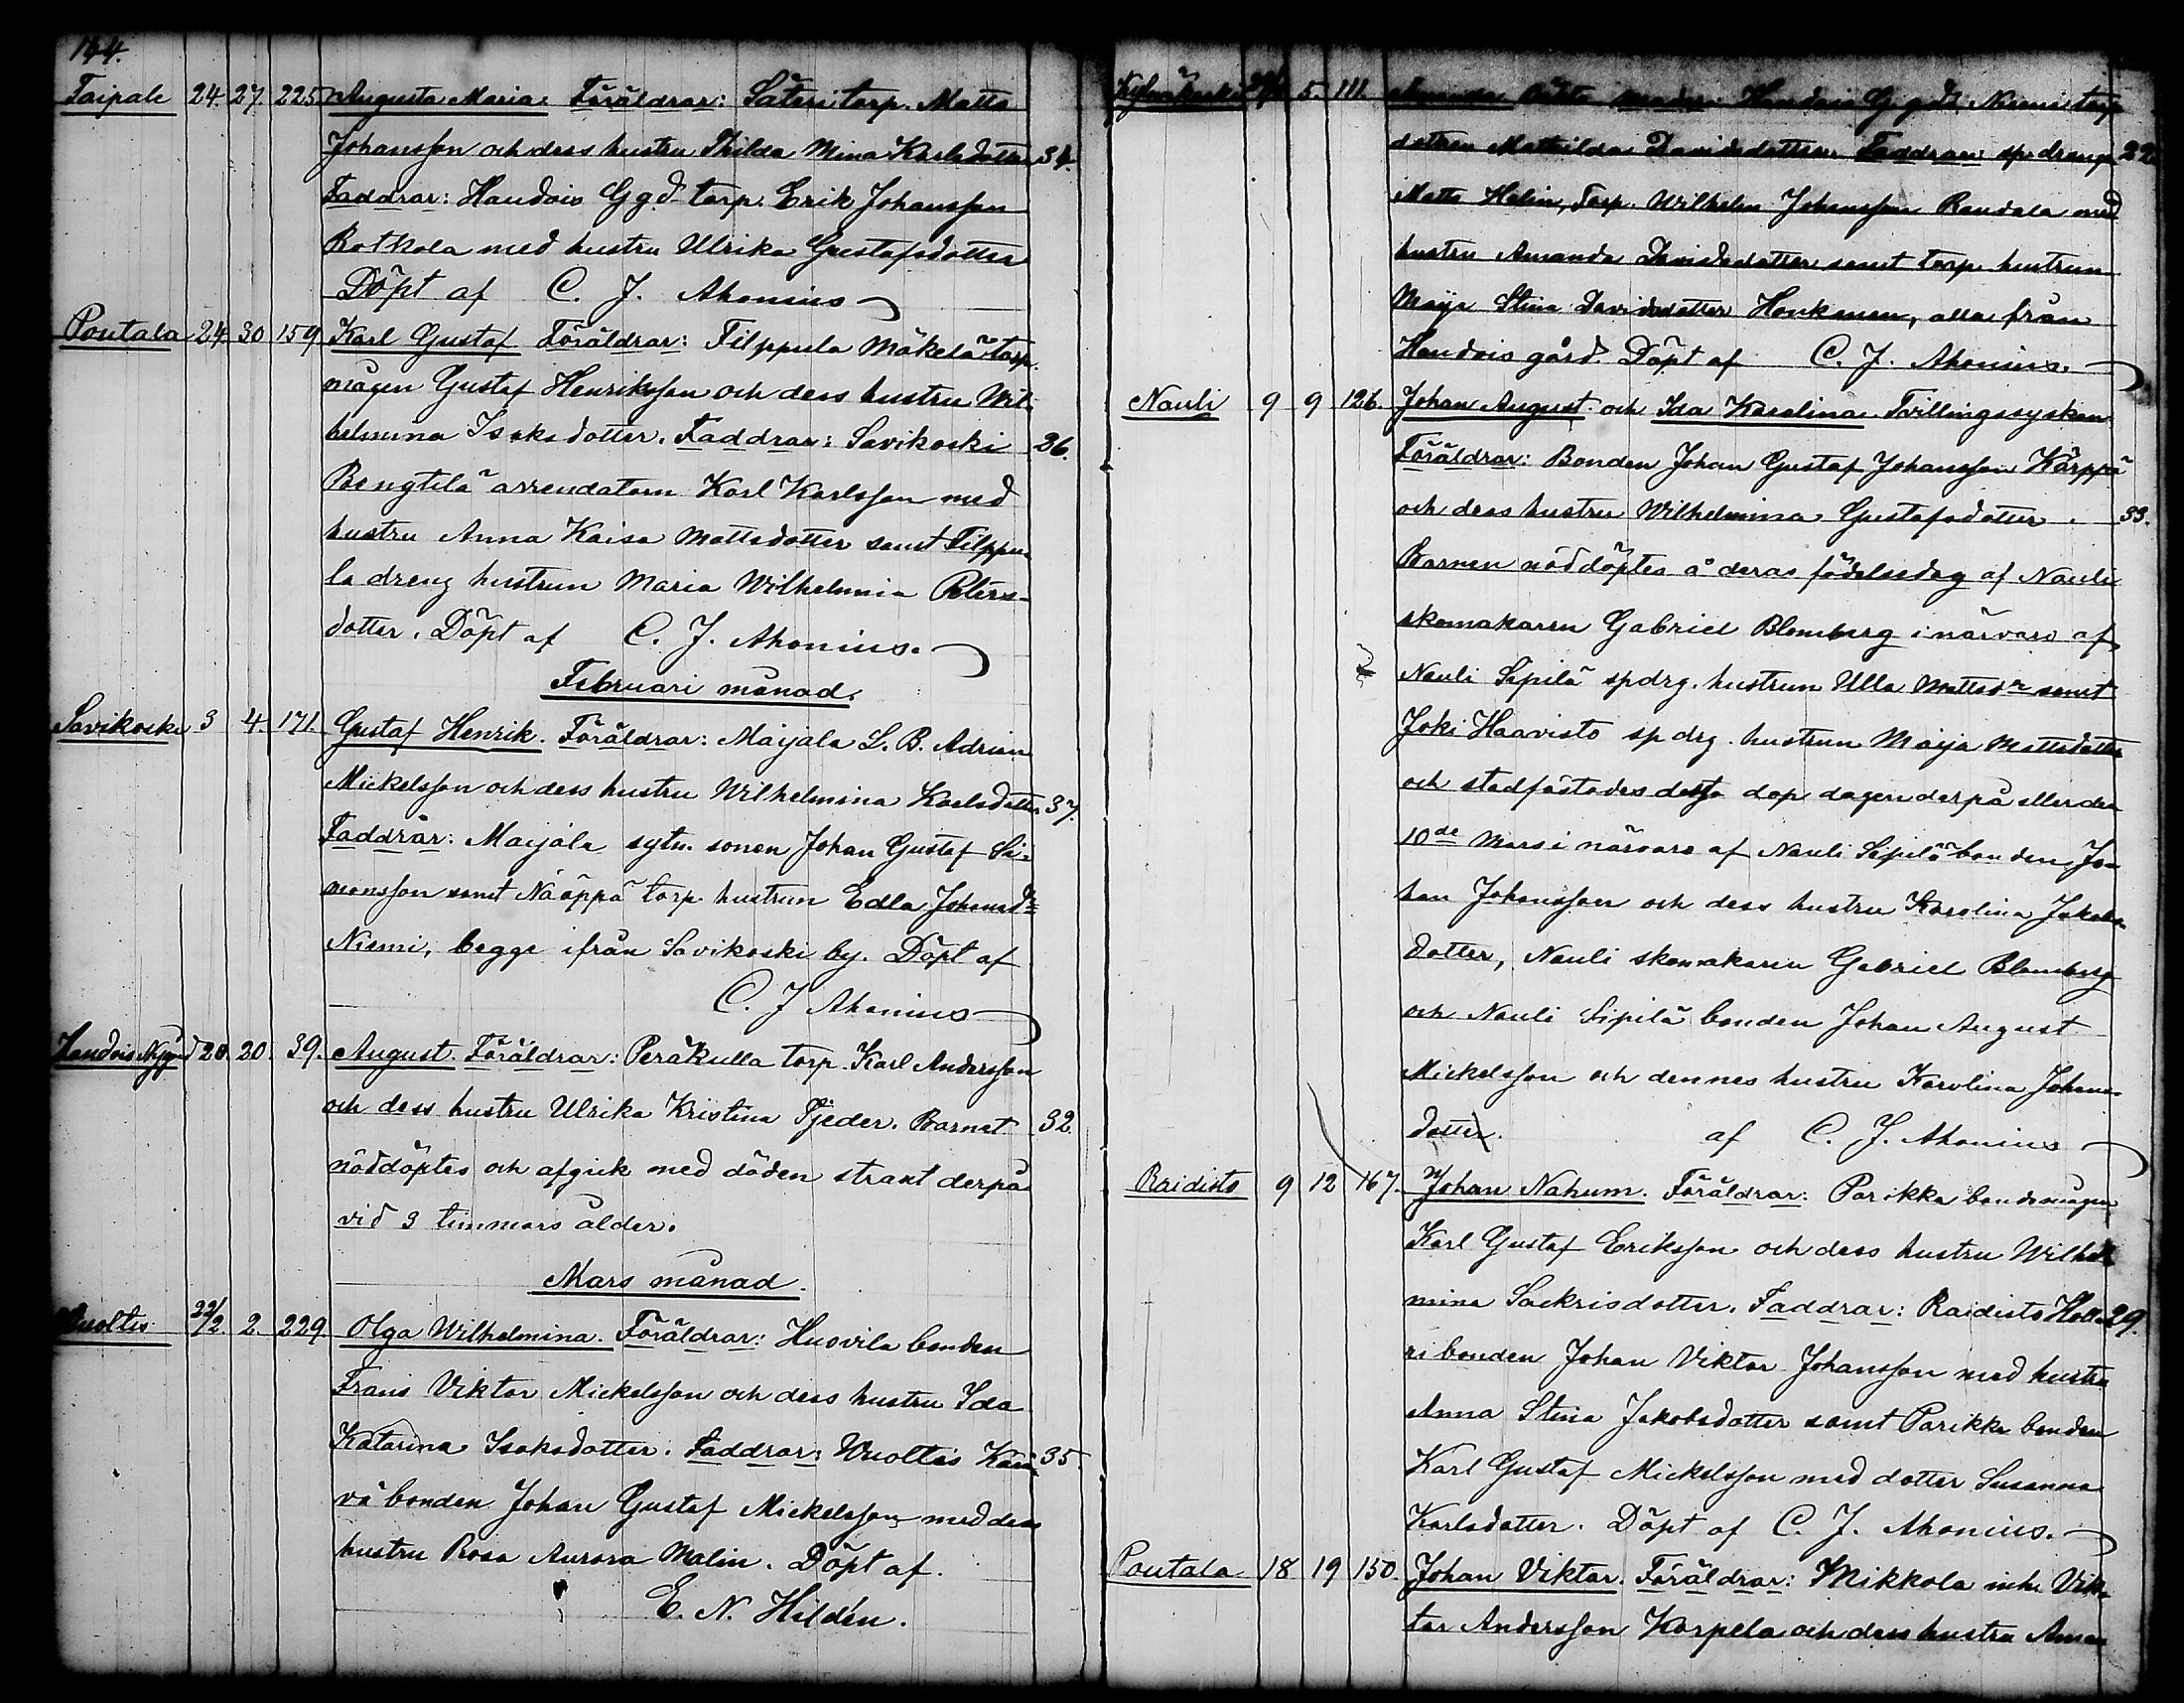 164.
Taipale 24. 27. 225 Augusta Maria. Föräldrar: Säteri torp. Matts
Johansson och dess hustru Thilda Mina Karlsdotter 34.
Faddrar: Haudois Ggd torp. Erik Johansson
Rotkola med hustru Ulrika Gustafsdotter
Döpt af C. J. Ahonius
Poutala 24. 30 159 Karl Gustaf Föräldrar: Filppula Mäkelä torp.
mågen Gustaf Henriksson och dess hustru Wil-
helmina Isaksdotter. Faddrar: Savikoski 26.
Bengtilä arrendatorn Karl Karlsson med
hustru Anna Kaisa Mattsdotter samt Filppu
la dreng hustrun Maria Wilhelmina Peters-
dotter. Döpt af C. J. Ahonius.
Februari månad.
Savikoski 3 4. 171. Gustaf Henrik. Föräldrar: Maijala L. B. Adrian
Mickelsson och dess hustru Wilhelmina Karlsdotter 37.
Faddrar: Maijala sytn. sonen Johan Gustaf Si-
monsson samt Nääppä torp. hustrun Edla Johansdr
Niemi, begge ifrån Savikoski by. Döpt af
C. J Ahonius
Haudois Nygård 20. 20. 39. August. Föräldrar: Peräkulla torp. Karl Andersson
och dess hustru Ulrika Kristina Fjeder. Barnet 32.
nöddöptes och afgick med döden straxt derpå
vid 3 timmars ålder.
Mars månad.
Wuoltis 22/2 2. 229 Olga Wilhelmina. Föräldrar: Huovila bonden
Frans Viktor Mickelsson och dess hustru Ida
Katarina Isaksdotter. Faddrar: Wuoltis 35.
vä bonden Johan Gustaf Mickelsson med dess
hustru Rosa Aurora Malin. Döpt af
E. N. Hildén.
5. 111. Amanda moder. Haudois Ggds Niemi torp
dottren Mathilda Davidsdotter. Faddrar: sp. drengen 22
Matts Helin, Torp. Wilhelm Johansson Randala med
hustru Amanda Davidsdotter samt torp. hustrun
Maija Stina Davidsdotter Honkanen, alla från
Haudois gård. Döpt af C. J. Ahonius.
Nauli 9 9 126. Johan August och Ida Karolina Tvillingssyskon
Föräldrar: Bonden Johan Gustaf Johansson Kärppä
och dess hustru Wilhelmina Gustafsdotter. 33.
Barnen nöddöptes å deras födelsedag af Nauli
skomakaren Gabriel Blomberg i närvaro af
Nauli Sipilä spdrg. hustrun Ulla Mattsdr samt
Joki Haavisto sp drg. hustrun Maija Mattsdotter
och stadfästades detta dop dagen derpå eller den
10de Mars i närvaro af Nauli Sipilä bonden Jo-
han Johansson och dess hustru Karolina Jakobs-
dotter, Nauli skomakaren Gabriel Blomberg
och Nauli Sipilä bonden Johan August
Mickelsson och dennes hustru Karolina Johans-
dotter. af C. J. Ahonius
Raidisto 9 12 167. Johan Nahum. Föräldrar: Parikka bondemågen
Karl Gustaf Eriksson och dess hustru Wilhel
mina Sackrisdotter. Faddrar: Raidisto Holla 29.
ri bonden Johan Viktor Johansson med hustru
Anna Stina Jakobsdotter samt Parikka bonden
Karl Gustaf Mickelsson med dotter Susanna
Karlsdotter. Döpt af C. J. Ahonius.
Poutala 18 19 150. Johan Viktor. Föräldrar: Mikkola inh. Vik-
tor Andersson Korpela och dess hustru Aman